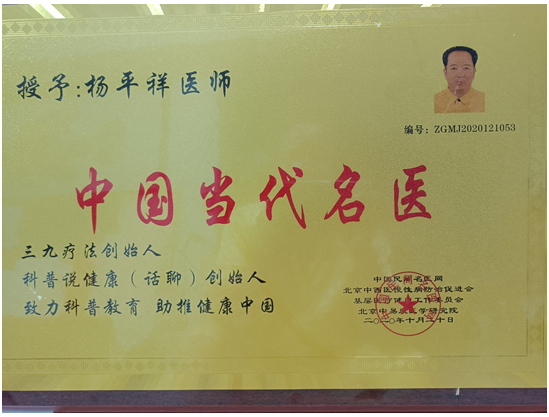 授予:杨平祥医师
编号: ZGMJ2020121053
中国当代名医
三九疗法创始人
科普说健康（话聊）创始人
致力科普教育 助推健康中国
中国民间名医网
北京中西医慢性病防治促进会
基层医疗健康工作委员会
北京中易康医学研究院
二〇二〇年十月二十日